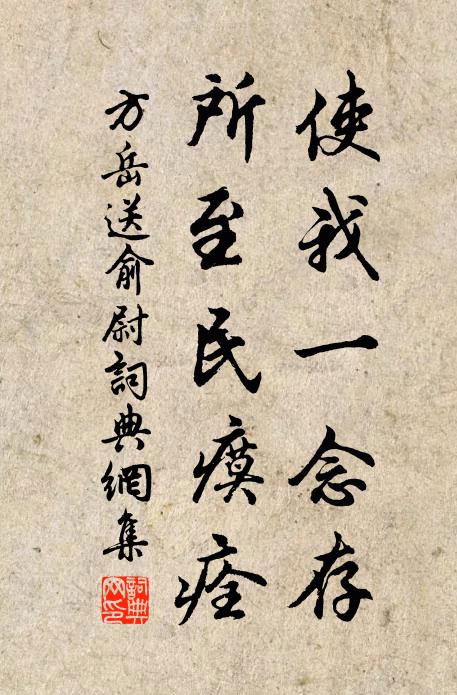 使我一念存
所至民瘼痊
方岳送俞尉詞典網集
詞典网印